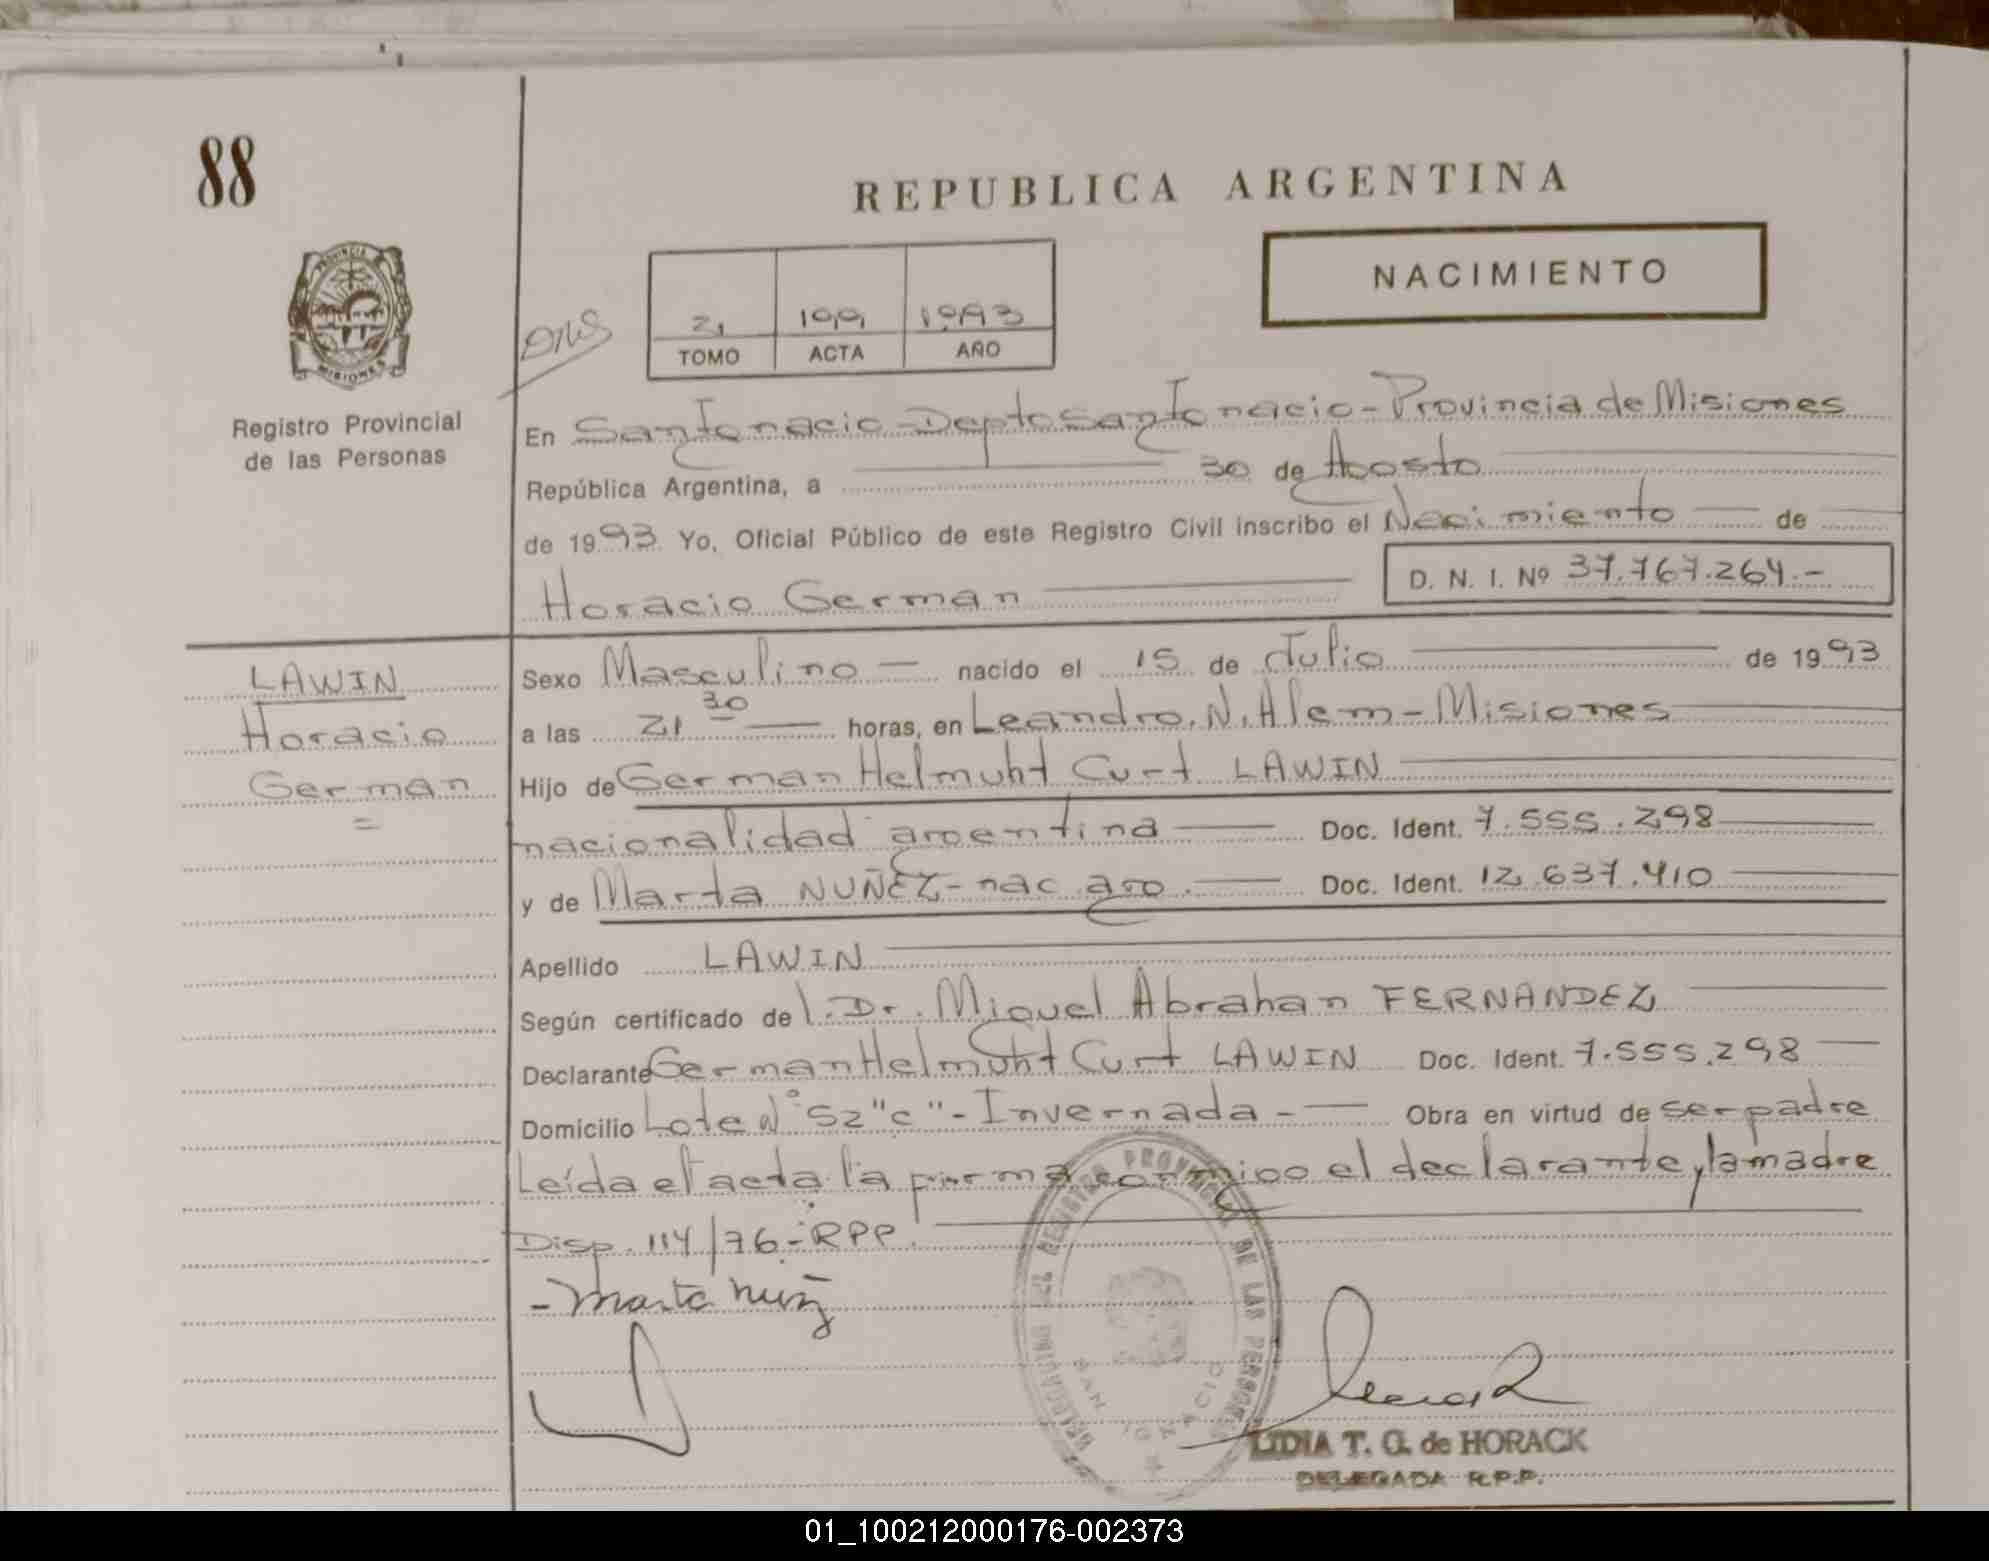 88
REPUBLICA ARGENTINA
NACIMIENTO
PROVINCIA
MISIONES
Registro Provincial
de las Personas
21 199 1993
TOMO ACTA AÑO
En San Ignacio - Depto San Ignacio - Provincia de Misiones
República Argentina, a 30 de Agosto
de 1993 Yo, Oficial Público de este Registro Civil inscribo el Nacimiento de
Horacio German
D. N. I. Nº 37.767.264.-
LAWIN
Horacio
German
Sexo Masculino - nacido el 15 de Julio de 1993
a las 21 30 horas, en Leandro. N. Alem - Misiones
Hijo de German Helmuht Curt LAWIN
nacionalidad argentina Doc. Ident. 7.555.298
y de Marta NUÑEZ - nac. arg. Doc. Ident. 12.637.410
Apellido LAWIN
Según certificado de l. Dr. Miguel Abrahan FERNANDEZ
Declarante German Helmuht Curt LAWIN Doc. Ident. 7.555.298
Domicilio Lote N° 52 "c" - Invernada - Obra en virtud de ser padre
Leída el acta la firma conmigo el declarante y la madre
Disp. 114/76 - RPP.
- Marta Nuñz
REGISTRO PROVINCIAL DE LAS PERSONAS
SAN IGNACIO
LIDIA T. G. de HORACK
DELEGADA R.P.P.
01_100212000176-002373